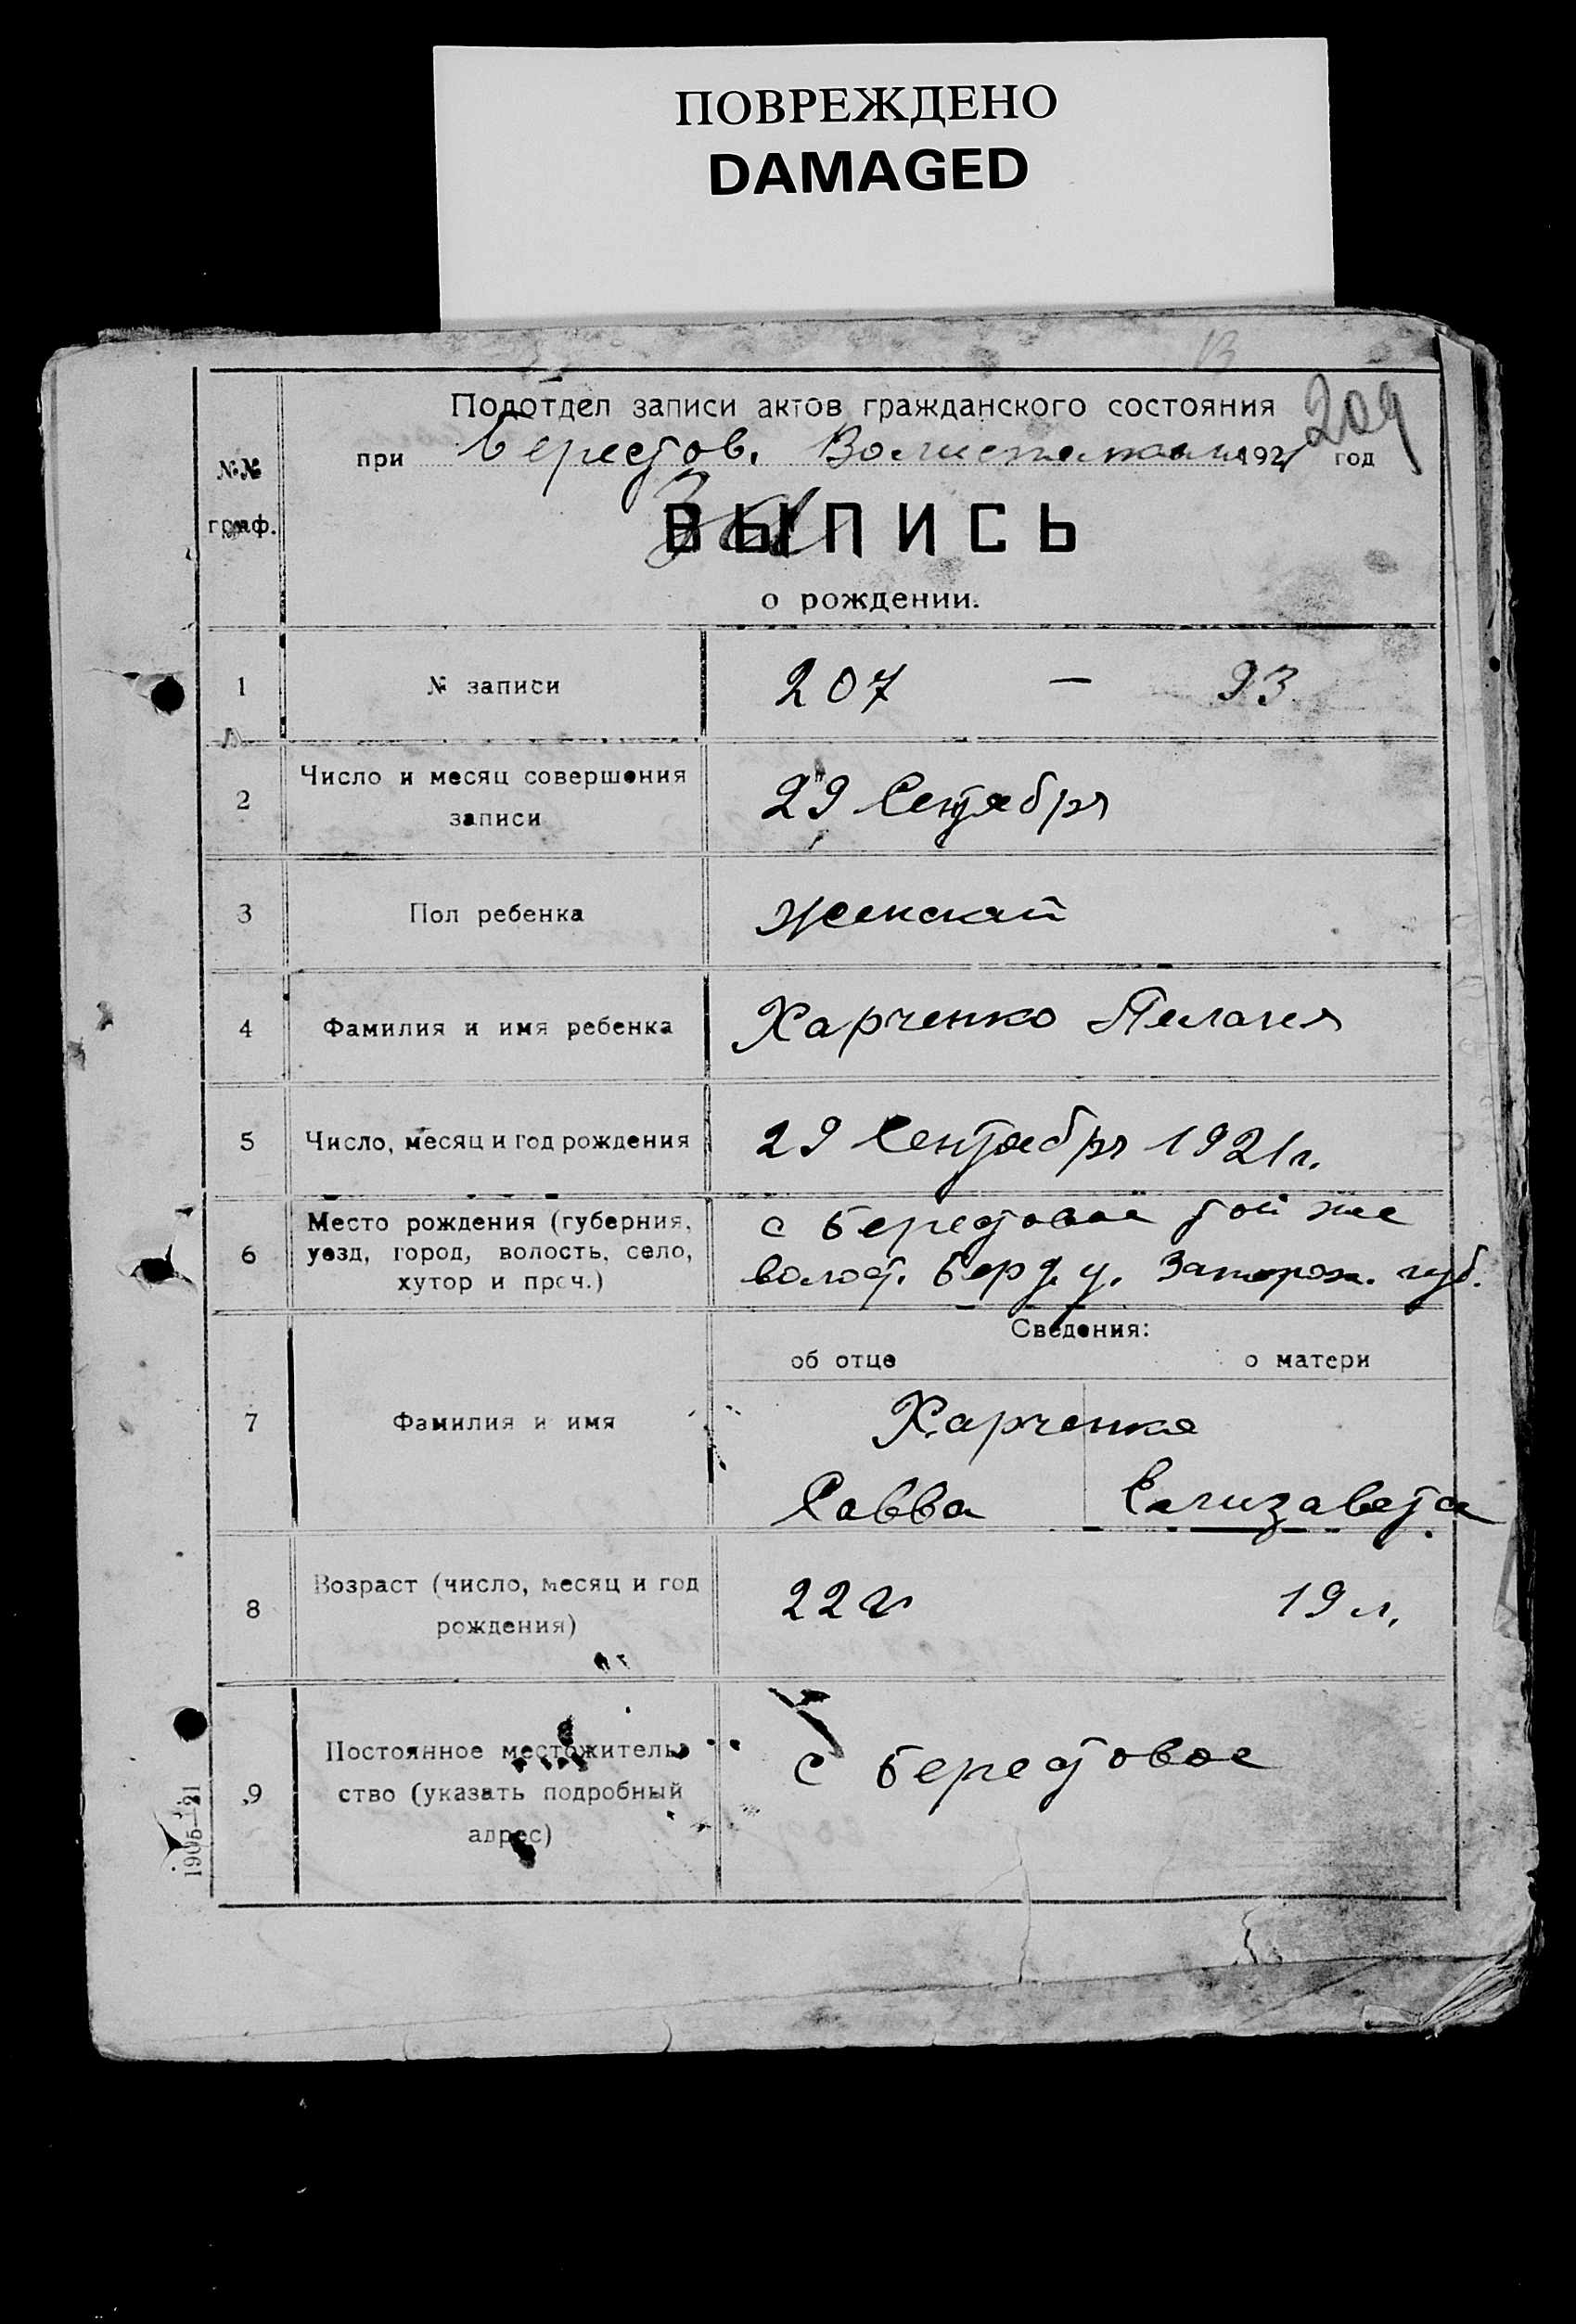 ПОВРЕЖДЕНО
DAMAGED
13
209
Подотдел записи актов гражданского состояния
при Берестов. Волисполкоме 1921 год
№№ граф.
ВЫПИСЬ
о рождении.
1 № записи 207 — 93
2 Число и месяц совершения записи 29 Сентября
3 Пол ребенка Женский
4 Фамилия и имя ребенка Харченко Пелагея
5 Число, месяц и год рождения 29 Сентября 1921 г.
6 Место рождения (губерния, с Берестовое той же
уезд, город, волость, село, волост. Берд. у. Запорож. губ.
хутор и проч.)
Сведения:
об отце о матери
7 Фамилия и имя Харченко
Савва Елизавета
8 Возраст (число, месяц и год 22 г 19 л.
рождения)
9 Постоянное местожитель-
ство (указать подробный с Берестовое
адрес)
1905—21